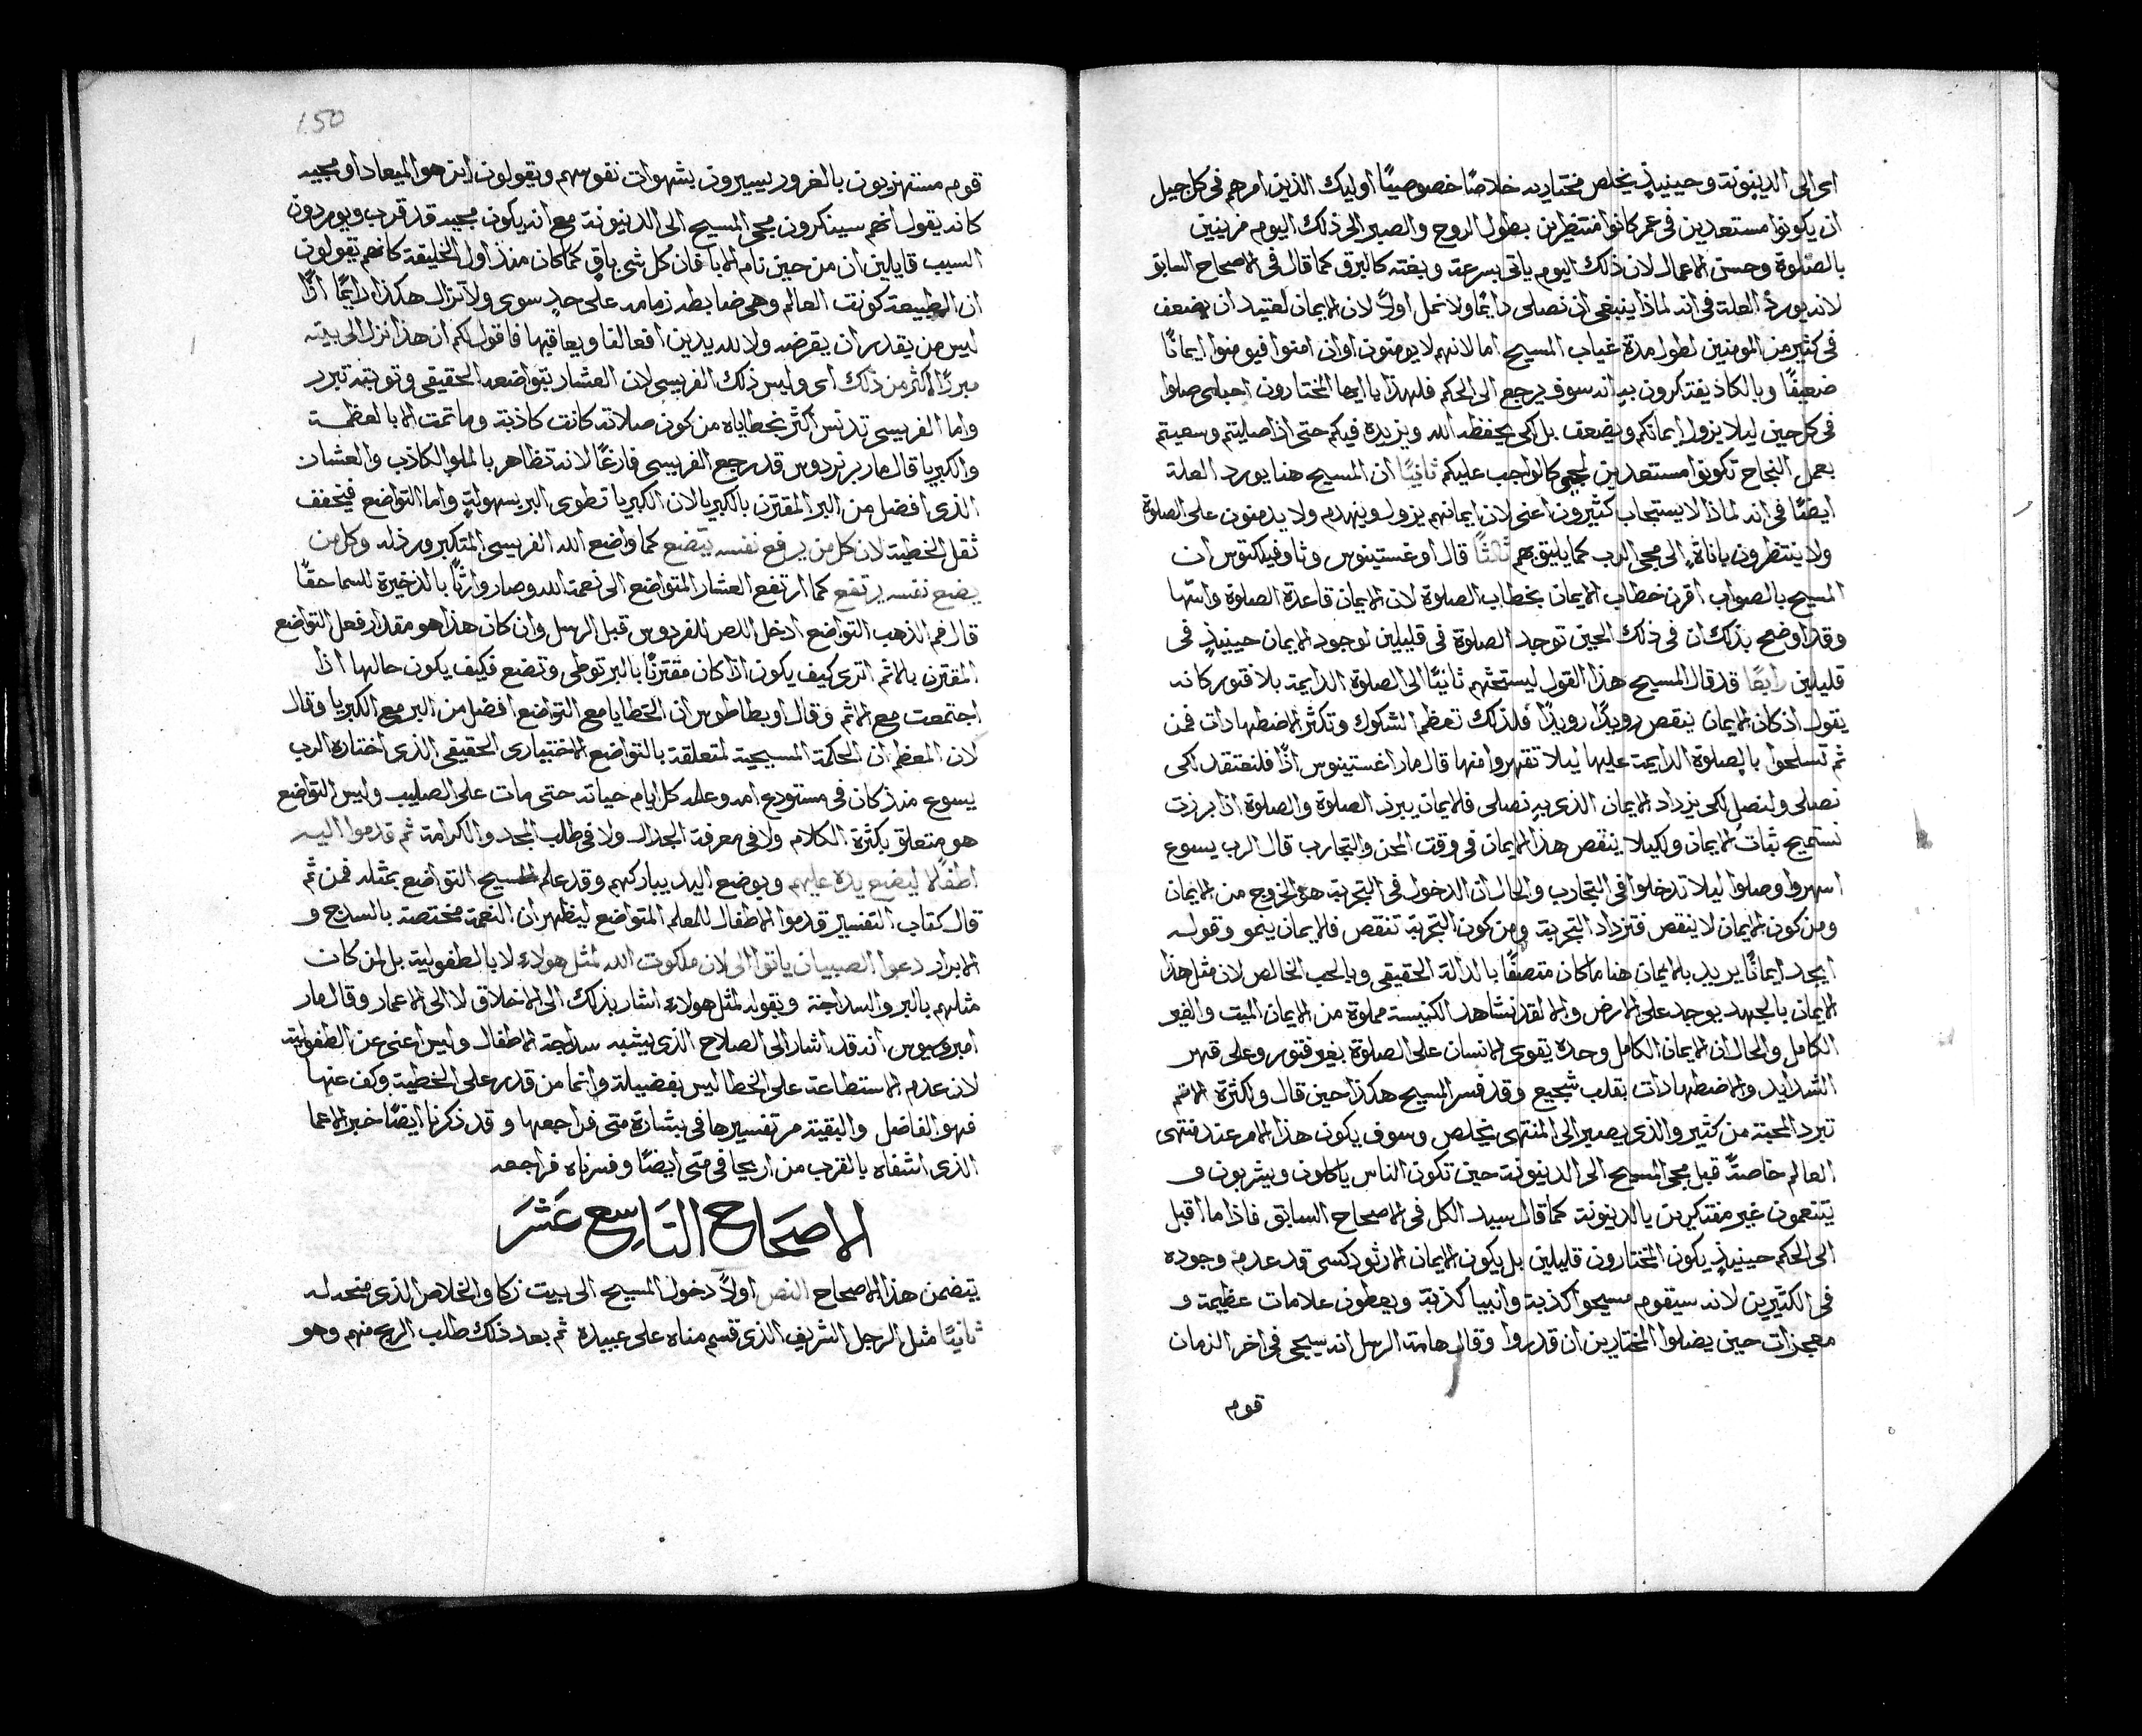 اى الى الدينونة وحينيذٍ يخلص مختاريه خلاصًا خصوصيًا اوليك الذين امرهم فى كل جيل
ان يكونوا مستعدين فى عمر كانوا منتظرين بطول الروح والصبر الى ذلك اليوم مزينين
بالصلوة وحسن الاعمال لان ذلك اليوم ياتى بسرعة وبغتة كالبرق كما قال فى الاصحاح السابق
لانه يورد العلة فى انه لماذا ينبغى ان نصلى دايمًا ولا نمل اولًا لان الايمان لعتيد ان يضعف
فى كثير من المومنين لطول مدة غياب المسيح اما لانهم لا يومنون او ان امنوا فيومنوا ايمانًا
ضعيفًا وبالكاد يفتكرون به انه سوف يرجع الى الحكم فلهذا يا ايها المختارون احباى صلوا
فى كل حين ليلا يزول ايمانكم ويضعف بل لكى يحفظه الله ويزيده فيكم حتى اذا صليتم وسعيتم
بعمل النجاح تكونوا مستعدين لمجيى كالواجب عليكم ثانيًا ان المسيح هنا يورد العلة
ايضًا فى انه لماذا لا يستجاب كثيرون اعنى لان ايمانهم يزول وينهدم ولا يدمنون على الصلوة
ولا ينتظرون باناةٍ الى مجى الرب كما يليق بهم ثالثًا قال اوغستينوس وثاوفيلكتوس ان
المسيح بالصواب اقرن خطاب الايمان بخطاب الصلوة لان الايمان قاعدة الصلوة واسّها
وقد اوضح بذلك ان فى ذلك الحين توجد الصلوة فى قليلين لوجود الايمان حينيذٍ فى
قليلين رابعًا قد قال المسيح هذا القول ليستحثهم ثانيًا الى الصلوة الدايمة بلا فتور كانه
يقول اذ كان الايمان ينقص رويدًا رويدًا فلذلك تعظم الشكوك وتكثر الاضطهادات فمن
ثم تسلحوا بالصلوة الدايمة عليها ليلا تقهروا منها قال مار اغستينوس اذًا فلنعتقد لكى
نصلى ولنصل لكى يزداد الايمان الذى به نصلى فالايمان يبرز الصلوة والصلوة اذا برزت
تستميح ثبات الايمان ولكيلا ينقص هذا الايمان فى وقت المحن والتجارب قال الرب يسوع
اسهروا وصلوا ليلا تدخلوا فى التجارب والحال ان الدخول فى التجربة هو الخروج من الايمان
ومن كون الايمان لا ينقص فتزداد التجربة ومن كون التجربة تنقص فالايمان ينمو وقوله
ايجد ايمانًا يريد بالايمان هنا ما كان متصفًا بالدالة الحقيقى وبالحب الخالص لان مثل هذا
الايمان بالجهد يوجد على الارض والا لقد نشاهد الكنيسة مملوة من الايمان الميت والغير
الكامل والحال ان الايمان الكامل وحده يقوى الانسان على الصلوة بغير فتور وعلى قهر
الشدايد والاضطهادات بقلب شجيع وقد فسر المسيح هكذا حين قال ولكثرة الاثم
تبرد المحبة من كثير والذى يصبر الى المنتهى يخلص وسوف يكون هذا الامر عند منتهى
العالم خاصةً قبل مجى المسيح الى الدينونة حين تكون الناس ياكلون ويشربون و
يتنعمون غير مفتكرين بالدينونة كما قال سيد الكل فى الاصحاح السابق فاذا ما اقبل
الى الحكم حينيذٍ يكون المختارون قليلين بل يكون الايمان الارثودكسى قد عدم وجوده
فى الكثيرين لانه سيقوم مسيحوا كذبة وانبيا كذبة ويعطون علامات عظيمة و
معجزات حين يضلوا المختارين ان قدروا وقال هامة الرسل انه سيجى فى اخر الزمان
قوم
150
قوم مستهزيون بالغرور يسيرون بشهوات نفوسهم ويقولون اين هو الميعاد او مجيه
كانه يقول انهم سينكرون مجى المسيح الى الدينونة مع انه يكون مجيه قد قرب ويوردون
السبب قايلين ان من حين نام الابا فان كل شى باقٍ كما كان منذ اول الخليقة كانهم يقولون
ان الطبيعة كونت العالم وهى ضابطه زمامه على حدٍ سوى ولا تزال هكذا دايمًا اذًا
ليس من يقدر ان يقرضه ولا لله يدين افعالنا ويعاقبها فاقول لكم ان هذا نزل الى بيته
مبررًا اكثر من ذلك اى وليس ذلك الفريسى لان العشار بتواضعه الحقيقى وتوبته تبرر
واما الفريسى تدنس اكثر بخطاياه من كون صلاته كانت كاذبة وما تمت الا بالعظمة
والكبريا قال مار برنردوس قد رجع الفريسى فارغًا لانه تظاهر بالملو الكاذب والعشار
الذى افضل من البر المقترن بالكبريا لان الكبريا تطوى البر بسهولةٍ واما التواضع فيخفف
ثقل الخطية لان كل من يرفع نفسه يتضع كما واضع الله الفريسى المتكبر ورذله وكل من
يضع نفسه يرتفع كما ارتفع العشار المتواضع الى نعمة الله وصار وارثًا بالذخيرة للسما حقًا
قال فم الذهب التواضع ادخل اللص للفردوس قبل الرسل وان كان هذا هو مقدار فعل التواضع
المقترن بالاثم اترى كيف يكون اذا كان مقترنًا بالبر توطى وتضع فكيف يكون حالها اذا
اجتمعت مع الاثم وقال اوبطاطوس ان الخطايا مع التواضع افضل من البر مع الكبريا وقال
لان المعظم ان الحكمة المسيحية لمتعلقة بالتواضع الاختيارى الحقيقى الذى اختاره الرب
يسوع منذ كان فى مستودع امه وعلمه كل ايام حياته حتى مات على الصليب وليس التواضع
هو متعلق بكثرة الكلام ولا فى معرفة الجدال ولا فى طلب المجد والكرامة ثم قدموا اليه
اطفالًا ليضع يده عليهم وبوضع اليد يباركهم وقد علم المسيح التواضع بمثله فمن ثم
قال كتاب التفسير قدموا الاطفال للمعلم المتواضع ليظهر ان النعمة مختصة بالسدج و
الابرار دعوا الصبيان ياتوا الى لان ملكوت الله لمثل هولاء لا بالطفولية بل لمن كان
مثلهم بالبر والسداجة وبقوله لمثل هولاء اشار بذلك الى الاخلاق لا الى الاعمار وقال مار
امبروسيوس انه قد اشار الى الصلاح الذى يشبه سداجة الاطفال وليس اعنى عن الطفولية
لان عدم الاستطاعة على الخطا ليس بفضيلة وانما من قدر على الخطية وكف عنها
فهو الفاضل والبقية مر تفسيرها فى بشارة متى فراجعها وقد ذكرنا ايضًا خبر الاعما
الذى اشفاه بالقرب من اريحا فى متى ايضًا وفسرناه فراجعه
الاصحاح التاسع عشر
يتضمن هذا الاصحاح النص اولًا دخول المسيح الى بيت زكا والخلاص الذى منحه له
ثانيًا مثل الرجل الشريف الذى قسم مناه على عبيده ثم بعد ذلك طلب الربح منهم وهو